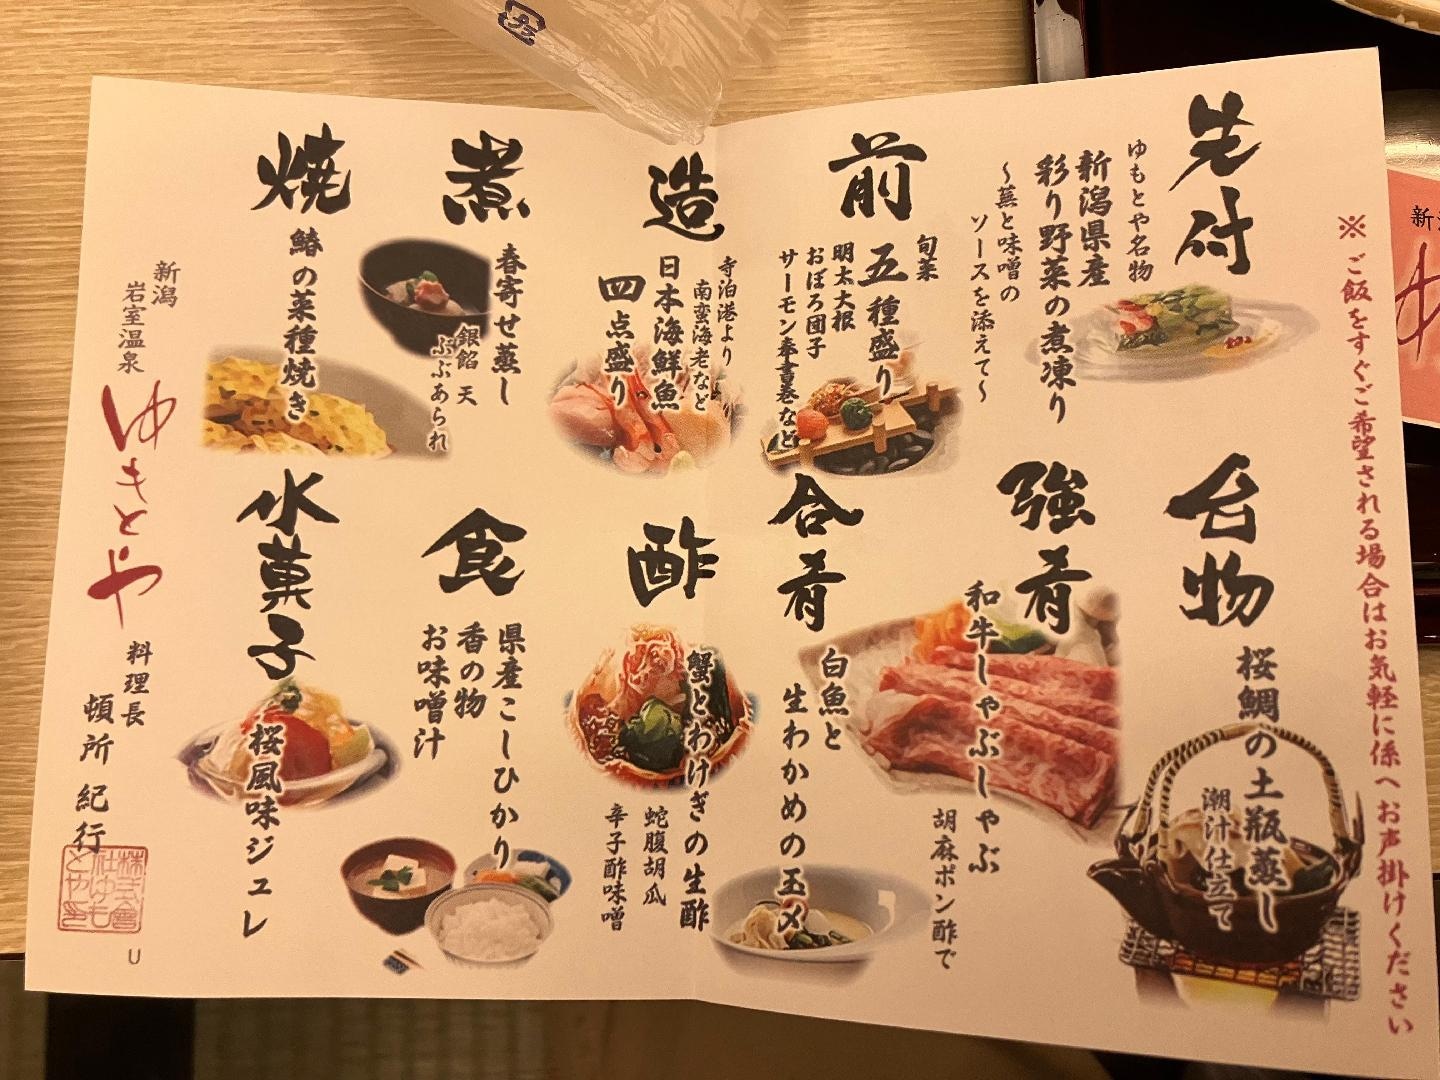 ※ご飯をすぐご希望される場合はお気軽に係へお声掛けください
先付
ゆもとや名物
新潟県産
彩り野菜の煮凍り
～蕪と味噌の
ソースを添えて～
前
旬菜
五種盛り
明太大根
おぼろ団子
サーモン奉書巻など
造
寺泊港より
南蛮海老など
日本海鮮魚
四点盛り
煮
春寄せ蒸し
銀餡 天
ぶぶあられ
焼
鰆の菜種焼き
台物
桜鯛の土瓶蒸し
潮汁仕立て
強肴
和牛しゃぶしゃぶ
胡麻ポン酢で
合肴
白魚と
生わかめの玉〆
酢
蟹とわけぎの生酢
蛇腹胡瓜
辛子酢味噌
食
県産こしひかり
香の物
お味噌汁
水菓子
桜風味ジュレ
新潟
岩室温泉
ゆもとや
料理長
頓所 紀行
株式會
社ゆも
とや印
U
新
ゆ